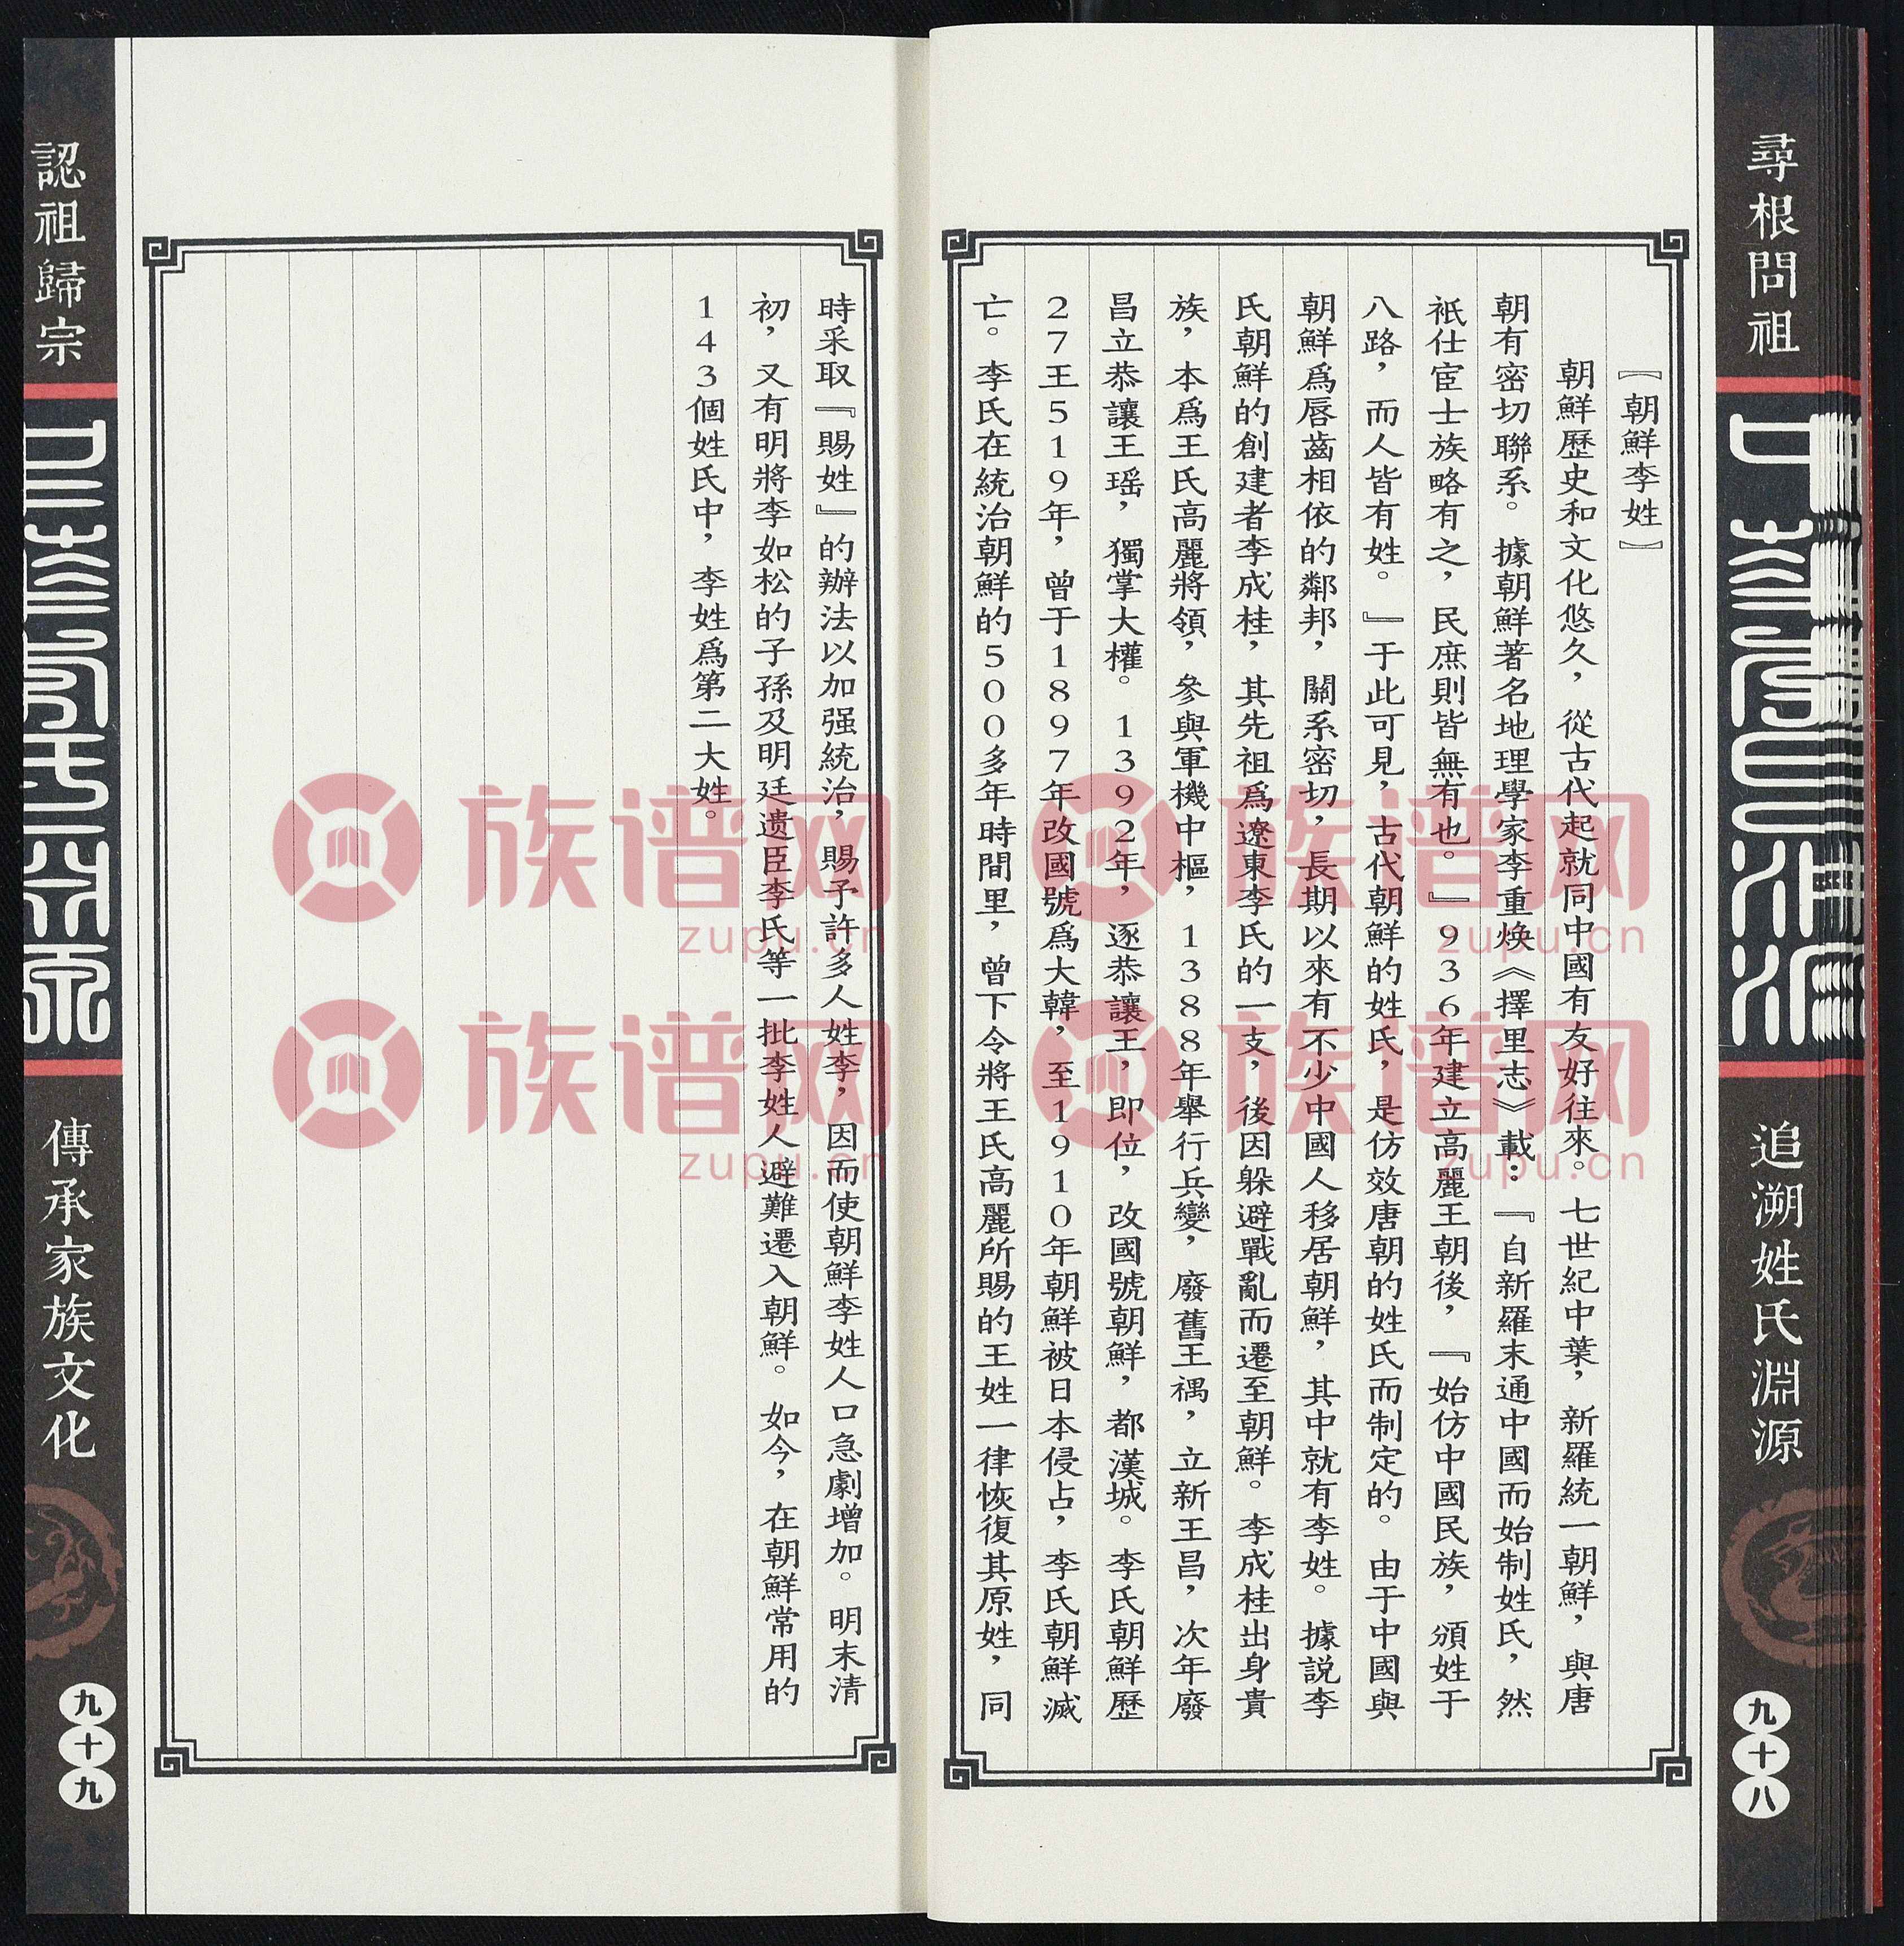 尋根問祖
追溯姓氏淵源
九十八
【朝鮮李姓】
朝鮮歷史和文化悠久，從古代起就同中國有友好往來。七世紀中葉，新羅統一朝鮮，與唐
朝有密切聯系。據朝鮮著名地理學家李重焕《擇里志》載：『自新羅末通中國而始制姓氏，然
祇仕宦士族略有之，民庶則皆無有也。』936年建立高麗王朝後，『始仿中國民族，頒姓于
八路，而人皆有姓。』于此可見，古代朝鮮的姓氏，是仿效唐朝的姓氏而制定的。由于中國與
朝鮮爲唇齒相依的鄰邦，關系密切，長期以來有不少中國人移居朝鮮，其中就有李姓。據説李
氏朝鮮的創建者李成桂，其先祖爲遼東李氏的一支，後因躲避戰亂而遷至朝鮮。李成桂出身貴
族，本爲王氏高麗將領，參與軍機中樞，1388年舉行兵變，廢舊王禑，立新王昌，次年廢
昌立恭讓王瑶，獨掌大權。1392年，逐恭讓王，即位，改國號朝鮮，都漢城。李氏朝鮮歷
27王519年，曾于1897年改國號爲大韓，至1910年朝鮮被日本侵占，李氏朝鮮滅
亡。李氏在統治朝鮮的500多年時間里，曾下令將王氏高麗所賜的王姓一律恢復其原姓，同
時采取『賜姓』的辦法以加强統治，賜予許多人姓李，因而使朝鮮李姓人口急劇增加。明末清
初，又有明將李如松的子孫及明廷遗臣李氏等一批李姓人避難遷入朝鮮。如今，在朝鮮常用的
143個姓氏中，李姓爲第二大姓。
認祖歸宗
傳承家族文化
九十九
族谱网
zupu.cn
族谱网
zupu.cn
族谱网
zupu.cn
族谱网
zupu.cn